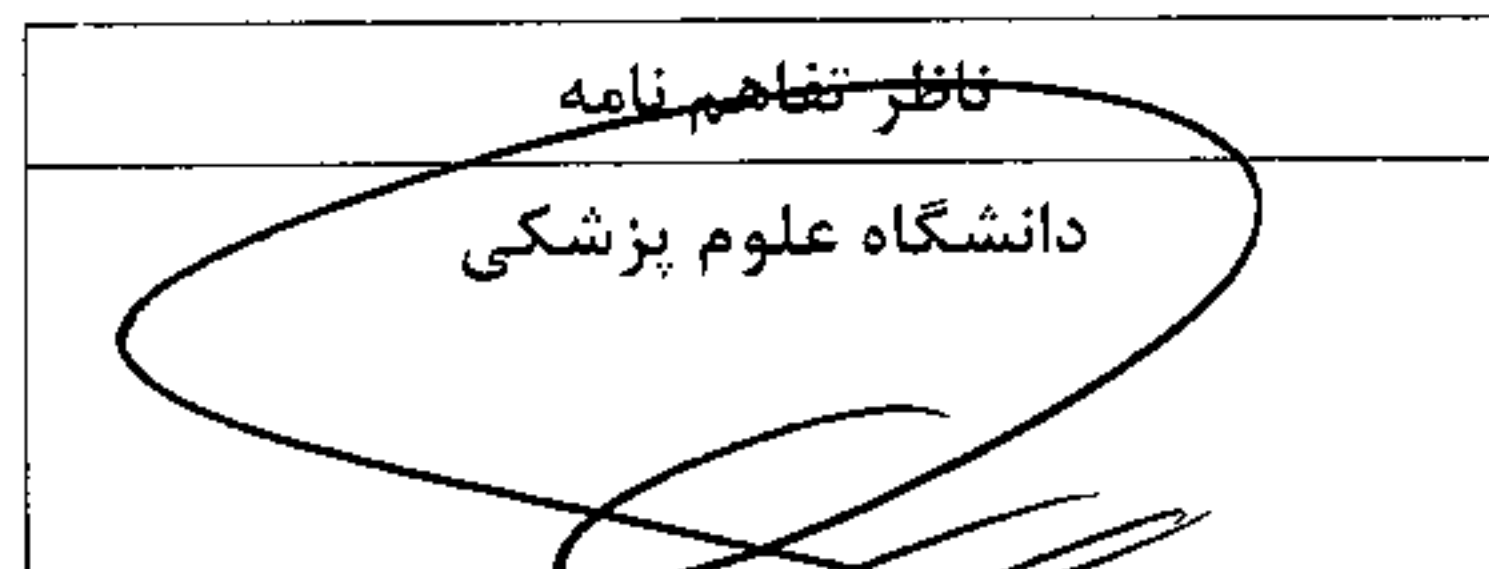 ناظر تفاهم نامه
دانشگاه علوم پزشکی